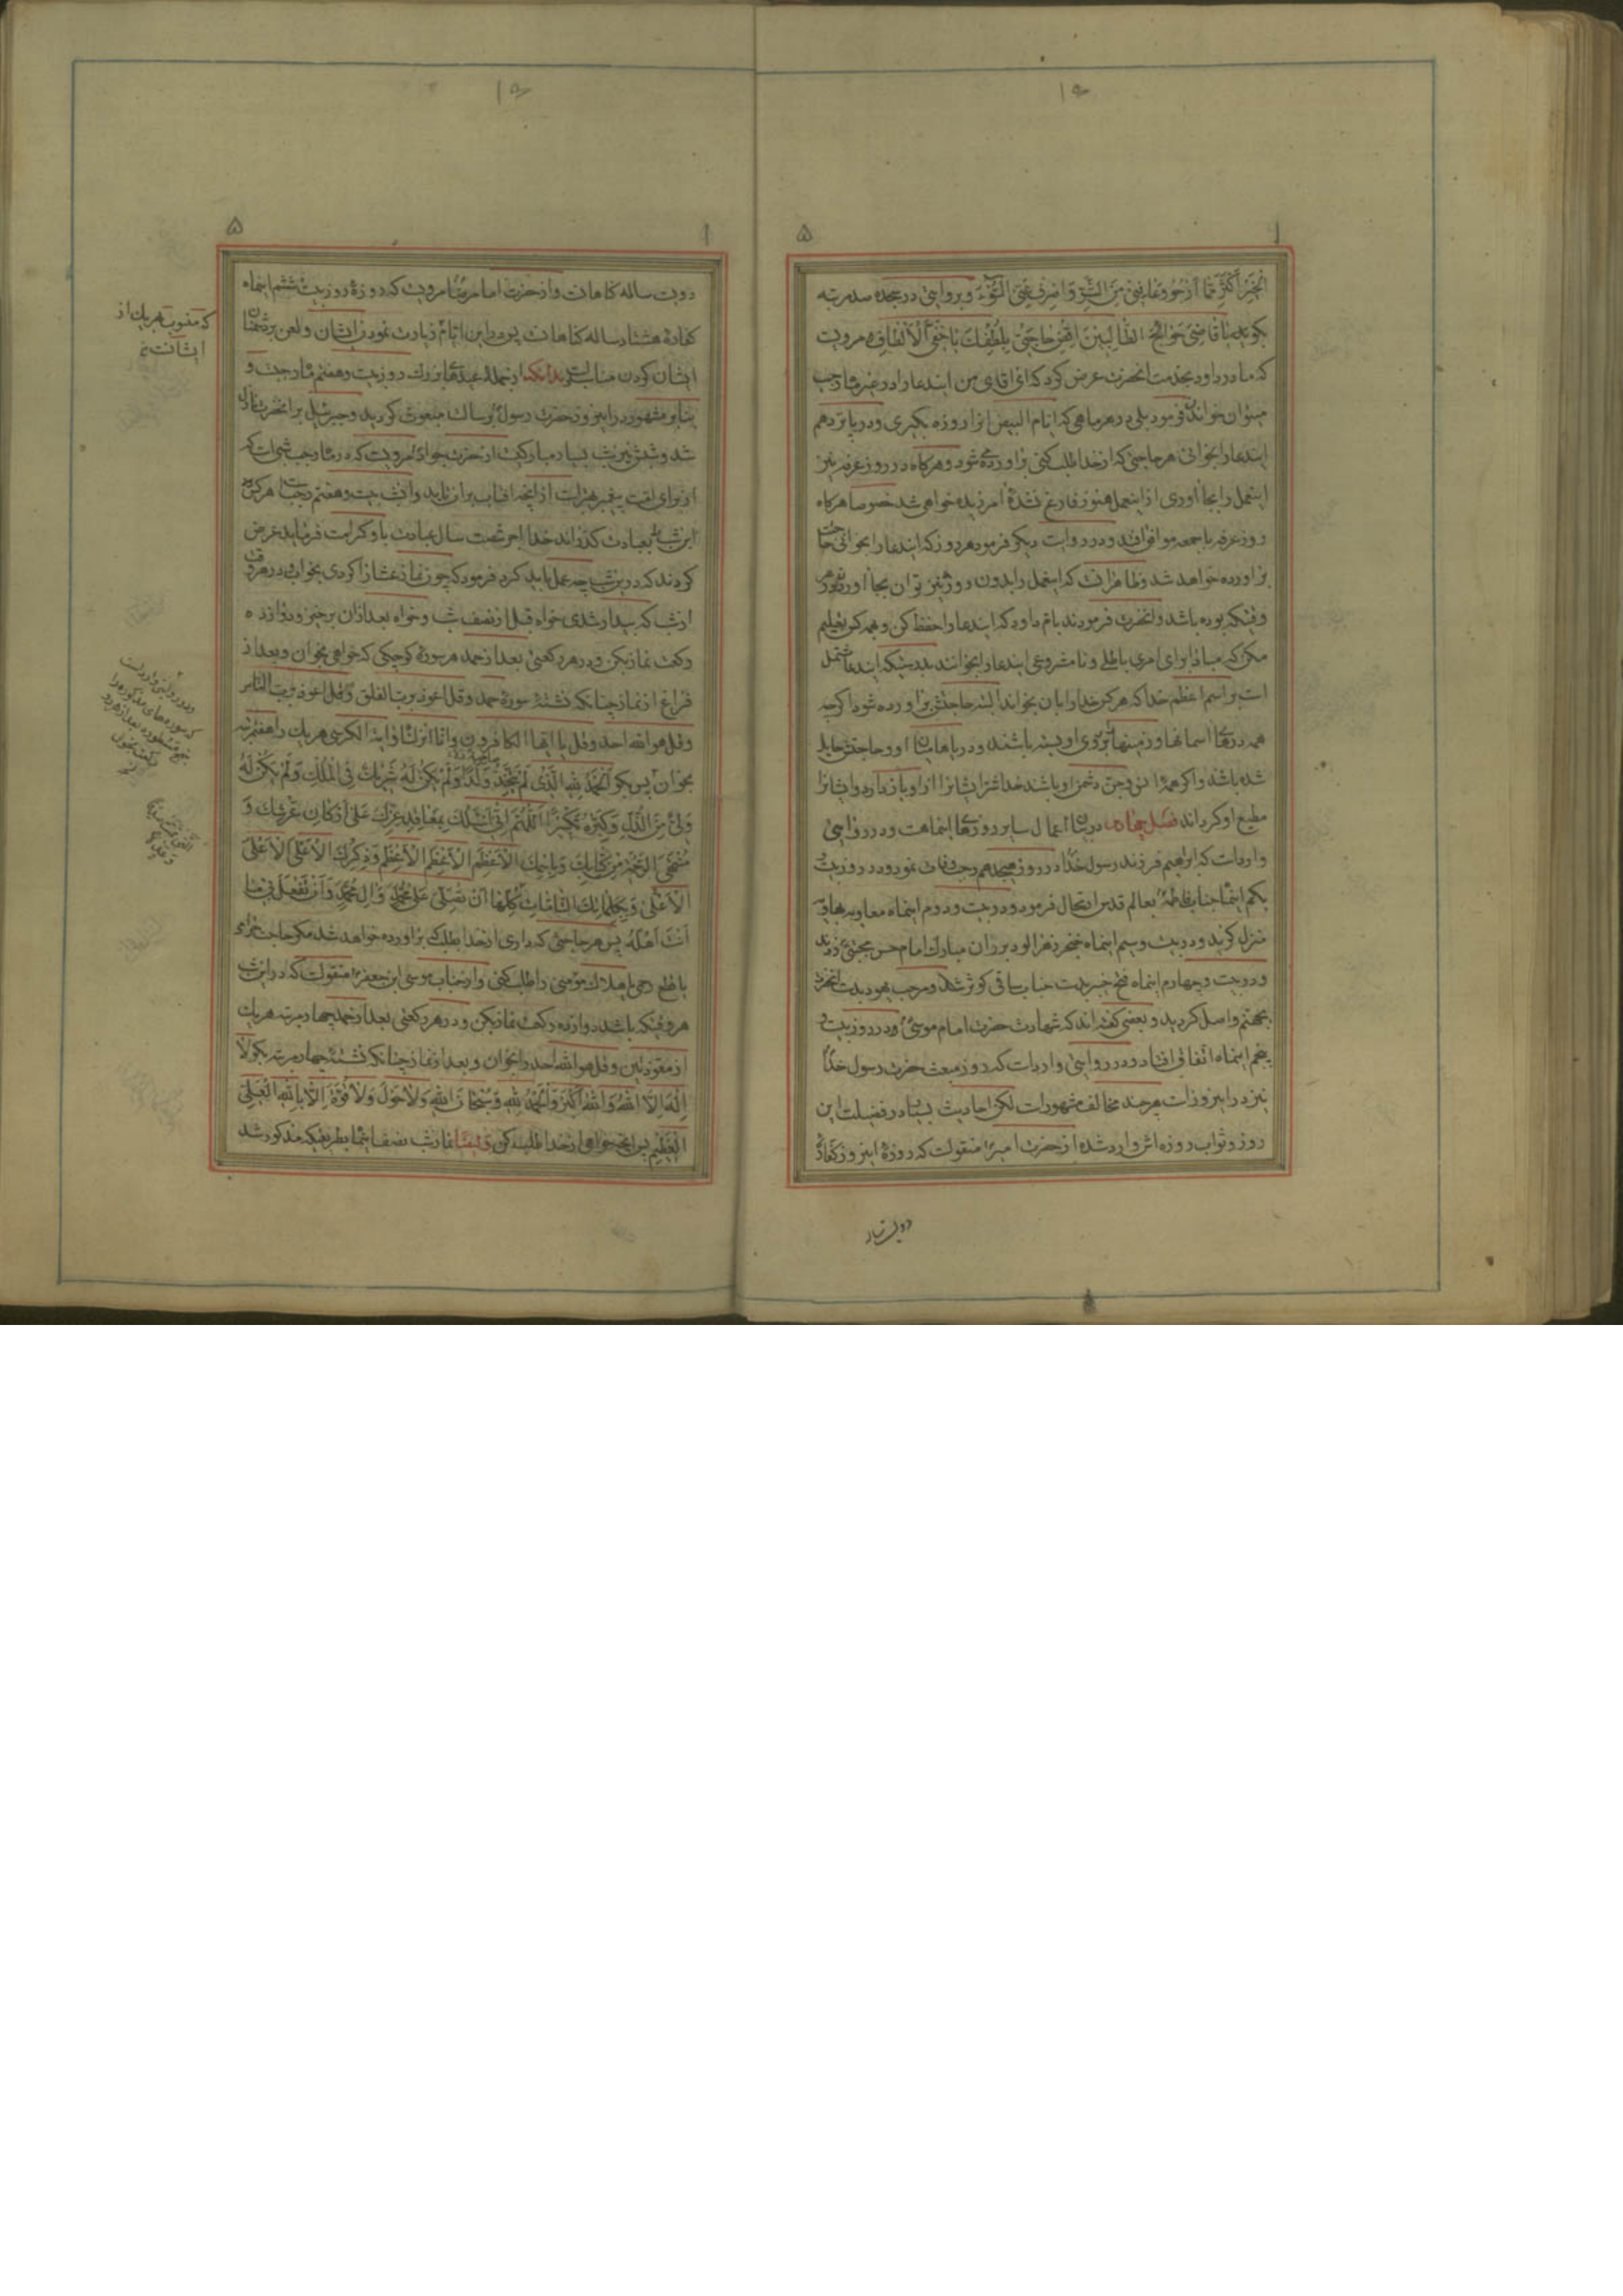 بکوید یا قاضی حوائج الطالبین اقض حاجتی بلطفک یا خفی الالطاف و مرویست
که مادر داود بخدمت انحضرت عرض کرد که ای اقای من ایندعا را در غیر ماه رجب
میتوان خواند فرمود بلی در هر ماهی که ایام البیض انرا روزه بگیری و در پانزدهم
ایندعا را بخوانی هر حاجتی که از خدا طلب کنی براورده شود و هرگاه در روز عرفه نیز
اینعمل را بجا اوری از اینعمل هنوز فارغ نشدهٔ امرزیده خواهی شد خصوصا هرگاه
روز عرفه با جمعه موافق افتد و در روایت دیگر فرمود هر روز که ایندعا را بخوانی
براورده خواهد شد و ظاهرانست که اینعمل را بدون روزه نیز توان بجا اورد
وقتیکه بوده باشد و انحضرت فرمودند بام داود که ایندعا را حفظ کن و بهمه کس تعلیم
مکن که مبادا برای امری باطلی و نامشروعی ایندعا را بخوانند بدرستیکه ایندعا مشتمل
است بر اسم اعظم خدا که هر کس خدا را بان بخواند البته حاجتش براورده شود اگرچه
همه درهای اسمانها و زمینها بر روی او بسته باشند و دریاها میان او و حاجتش حایل
شده باشد و اگر همه انس و جن دشمن او باشند خدا شر ایشانرا از او باز دارد و ایشانرا
مطیع او کرداند فصل چهارم در بیان اعمال سایر روزهای اینماهست و در روایتی
وارداست که ابراهیم فرزند رسول خدا در روز هیجدهم رجب وفات نمود و در روز بیست
یکم اینماه جناب فاطمه بعالم قدس ارتحال فرمود و در بیست و دوم اینماه معاویه بهاویه
منزل کزید و در بیست و سیم اینماه خنجر زهرالود بر ران مبارک امام حسن مجتبی زدند
و در بیست و چهارم اینماه فتح خیبر بدست جناب ساقی کوثر شد و مرحب یهود بدست انحضرت
بجهنم واصل کردید و بعضی گفته‌اند که شهادت حضرت امام موسی در روز بیست و
پنجم اینماه اتفاق افتاد و در روایتی وارداست که روز مبعث حضرت رسول خدا
نیز در اینروز است هرچند مخالف مشهور است لکن احادیث بسیار در فضیلت این
روز و ثواب روزه اش وارد شده از حضرت امیر منقولست که روزهٔ اینروز کفارهٔ
دویست سال
دویست ساله کناهانست و از حضرت امام رضا مرویست که روزهٔ روز بیست ششم اینماه
کفارهٔ هشتاد ساله کناهانست پس در این ایام زیارت نمودن ایشان و لعن بر دشمنان
ایشان کردن مناسبست بدانکه از جمله عیدهای بزرک روز بیست و هفتم ماه رجبست و
بنابر مشهور در اینروز حضرت رسول برسالت مبعوث کردید و جبرئیل بر انحضرت نازل
شد و شبش نیز شب بسیار مبارکیست از حضرت جواد مرویست که در ماه رجب شبی است که
از برای امت پیغمبر بهتر است از انچه افتاب بران تابد و انشب بیست و هفتم رجب است هر کس
این شب را بعبادت کذراند خدا اجر شصت سال عبادت باو کرامت فرماید عرض
کردند که در ین شب چه عمل باید کرد فرمود که چون نماز عشا را کردی بخواب و در هر وقت
از شب که بیدار شدی خواه قبل از نصف شب و خواه بعد ازان برخیز و دوازده
رکعت نماز بکن و در هر رکعتی بعد از حمد هر سورهٔ کوچکی که خواهی بخوان و بعد از
فراغ از نماز چنانکه نشستهٔ سورهٔ حمد و قل اعوذ برب الفلق و قل اعوذ برب الناس
و قل هو الله احد و قل یا ایها الکافرون و انا انزلنا و ایة الکرسی هر یک را هفت مرتبه
بخوان پس بکو الحمد لله الذی لم یتخذ ولدا و لم یکن له شریک فی الملک و لم یکن له
ولی من الذل و کبره تکبیرا اللهم انی اسئلک بمعاقد عزک علی ارکان عرشک و
منتهی الرحمة من کتابک و باسمک الاعظم الاعظم الاعظم و ذکرک الاعلی الاعلی
الاعلی و بکلماتک التامات کلها ان تصلی علی محمد و ال محمد و ان تفعل بی ما
انت اهله پس هر حاجتی که داری از خدا بطلب که براورده خواهد شد مکر حاجت
هر وقتکه باشد دوازده رکعت نماز بکن و در هر رکعتی بعد از حمد چهار مرتبه هر یک
از معوذتین و قل هو الله احد را بخوان و بعد از نماز چنانکه نشستهٔ چهار مرتبه بکو لا
اله الا الله و الله اکبر و الحمد لله و سبحان الله و لا حول و لا قوة الا بالله العلی
العظیم پس انچه خواهی از خدا طلب کن
که منسوب بهر یک از
ایشانست